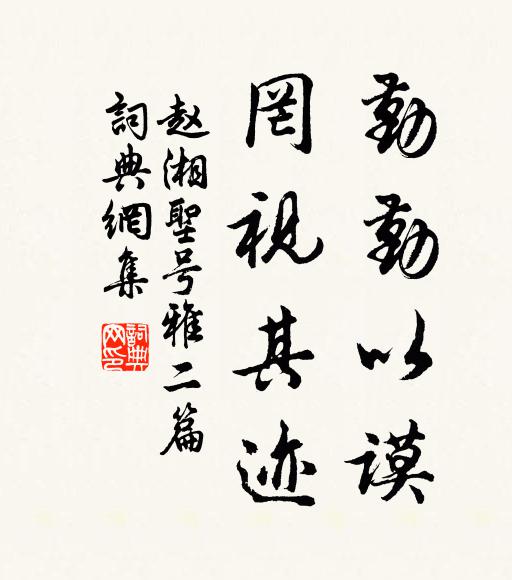 勤勤以谟
罔视其迹
赵湘聖号雅二篇
詞典網集
詞典网印